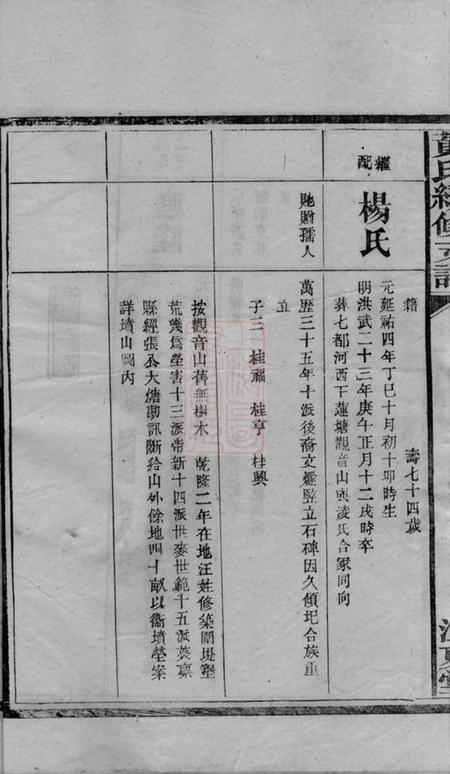 黃氏續修支譜
江夏堂
籍
壽七十四歲
繼配
楊氏
元延祐四年丁巳十月初十卯時生
明洪武二十三年庚午正月十二戌時卒
葬七都河西下蓮塘觀音山與凌氏合冢同向
貤贈孺人
萬歷三十五年十派後裔文 竪立石碑因久傾圮合族重
立
子三 桂福 桂亨 桂興
按觀音山舊無樹木 乾隆二年在地汪姓修築圍堤塋
荒幾爲塋害十三派帝新十四派世麥世範十五派 稟
縣經張公大 勘訊斷給山外餘地四十畝以衞墳塋案
詳墳山圖內